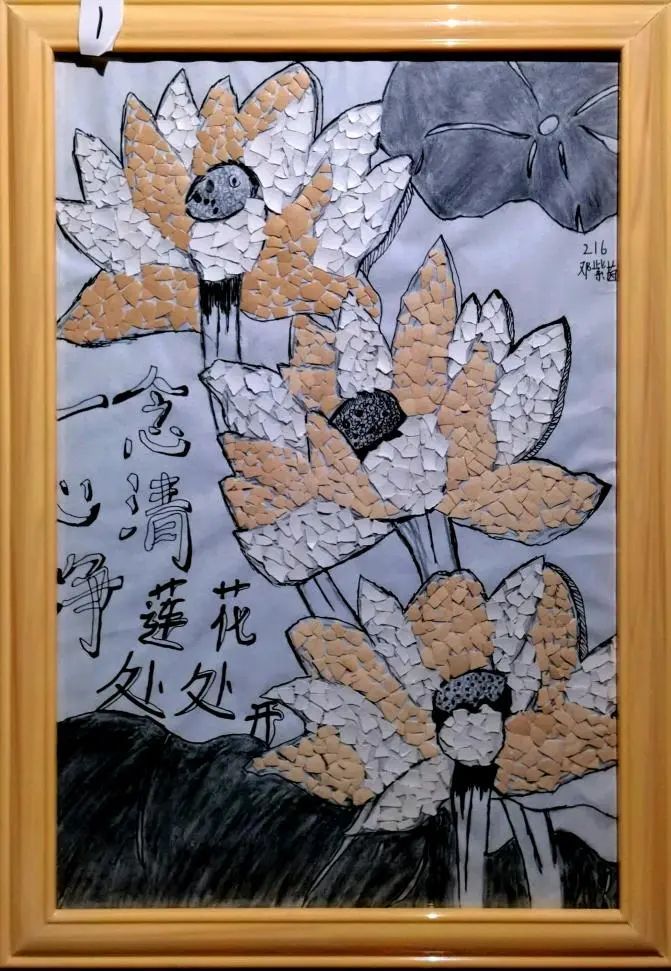 1
216
邓紫
一念
心清
净莲花
处处开